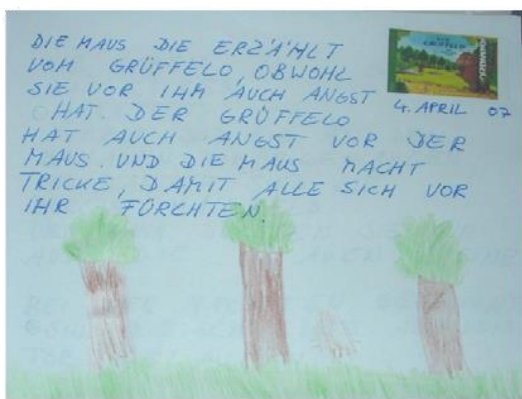 DIE MAUS DIE ERZÄHLT
VOM GRÜFFELO, OBWOHL
SIE VOR IHM AUCH ANGST
HAT. DER GRÜFFELO
HAT AUCH ANGST VOR DER
MAUS. UND DIE MAUS MACHT
TRICKE, DAMIT ALLE SICH VOR
IHR FÜRCHTEN.
GRÜFFELO
4. APRIL 07